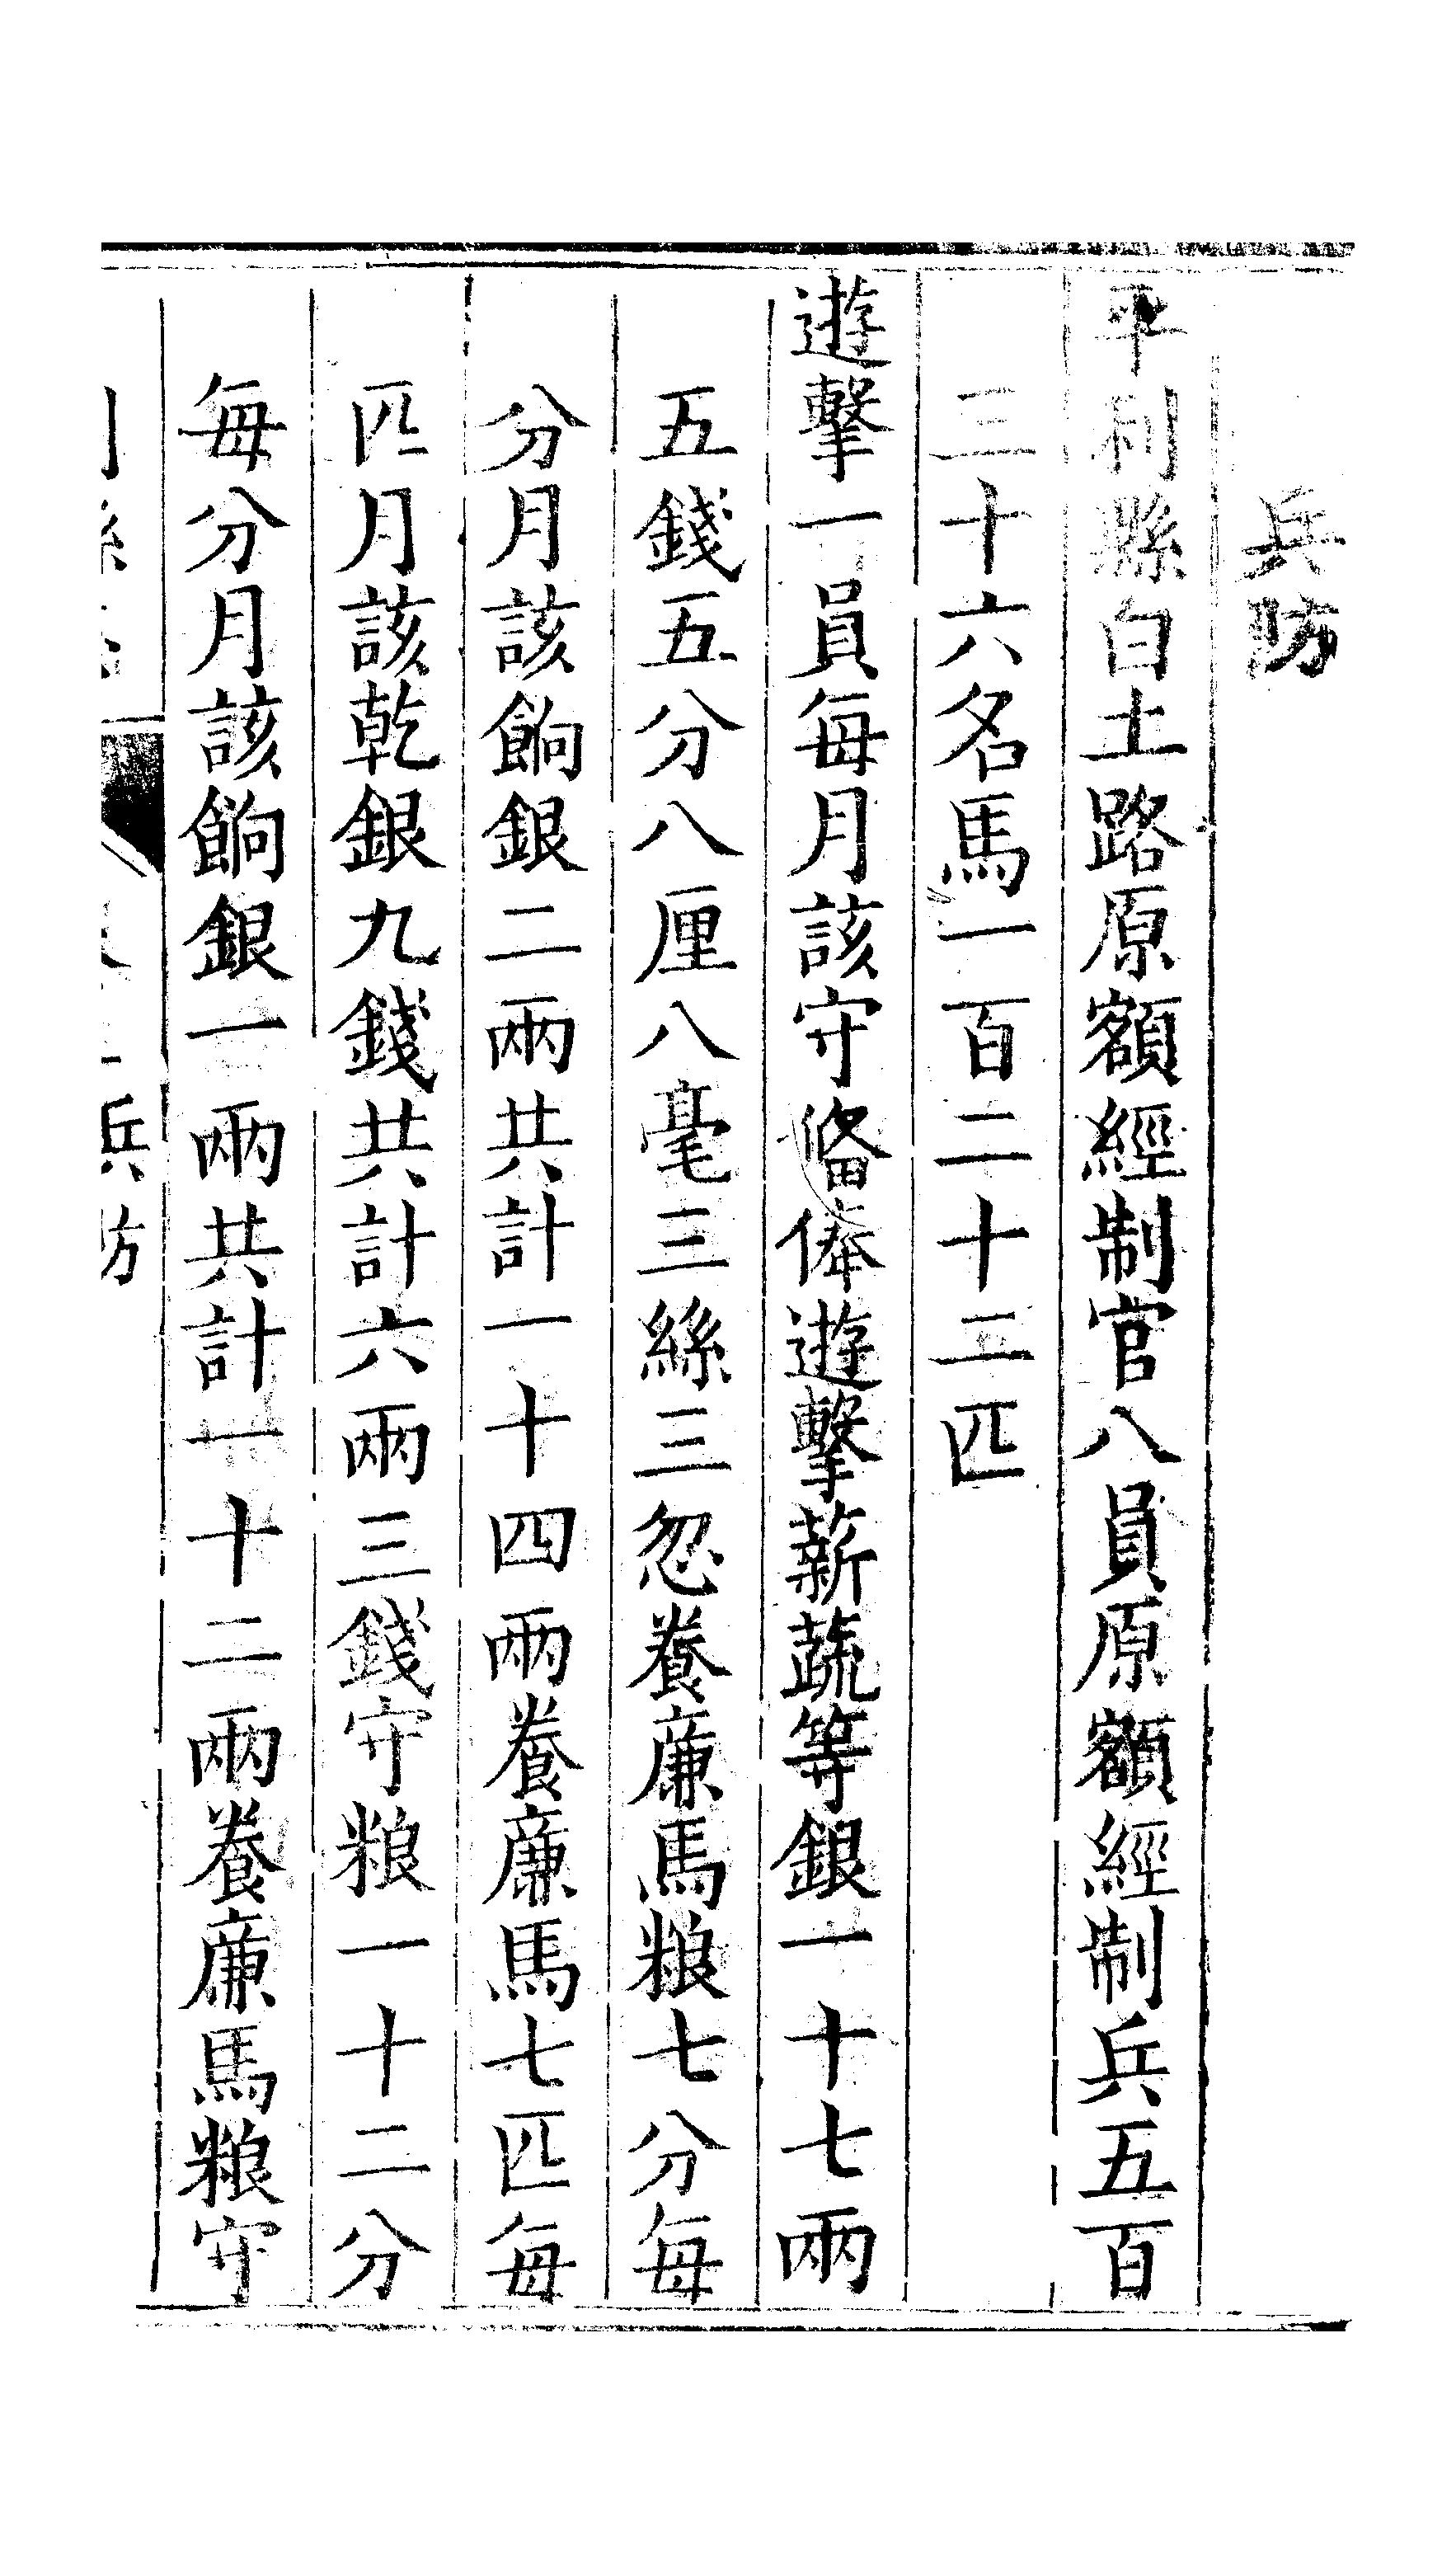 兵防
平利縣白土路原額經制官八員原額經制兵五百
三十六名馬一百二十二匹
遊擊一員每月該守備俸遊擊薪蔬等銀一十七兩
五錢五分八厘八毫三絲三忽養廉馬粮七分每
分月該餉銀二兩共計一十四兩養廉馬七匹每
匹月該乾銀九錢共計六兩三錢守粮一十二分
每分月該餉銀一兩共計一十二兩養廉馬粮守
兵防